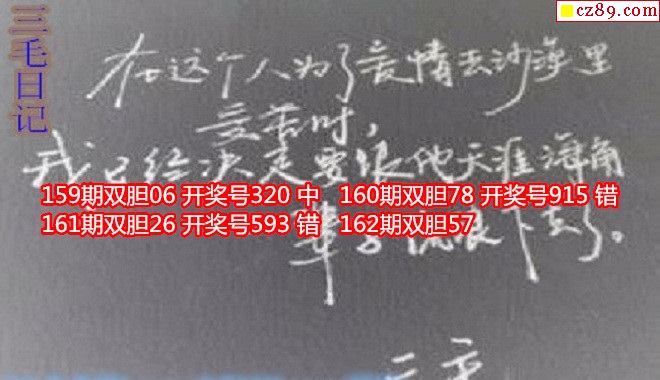 cz89.com
三毛日记
在这个人为了爱情去沙漠里
受苦时,
我已经决定要跟他天涯海角
159期双胆06 开奖号320 中 160期双胆78 开奖号915 错
161期双胆26 开奖号593 错 162期双胆57
辈子流浪下去了。
三毛